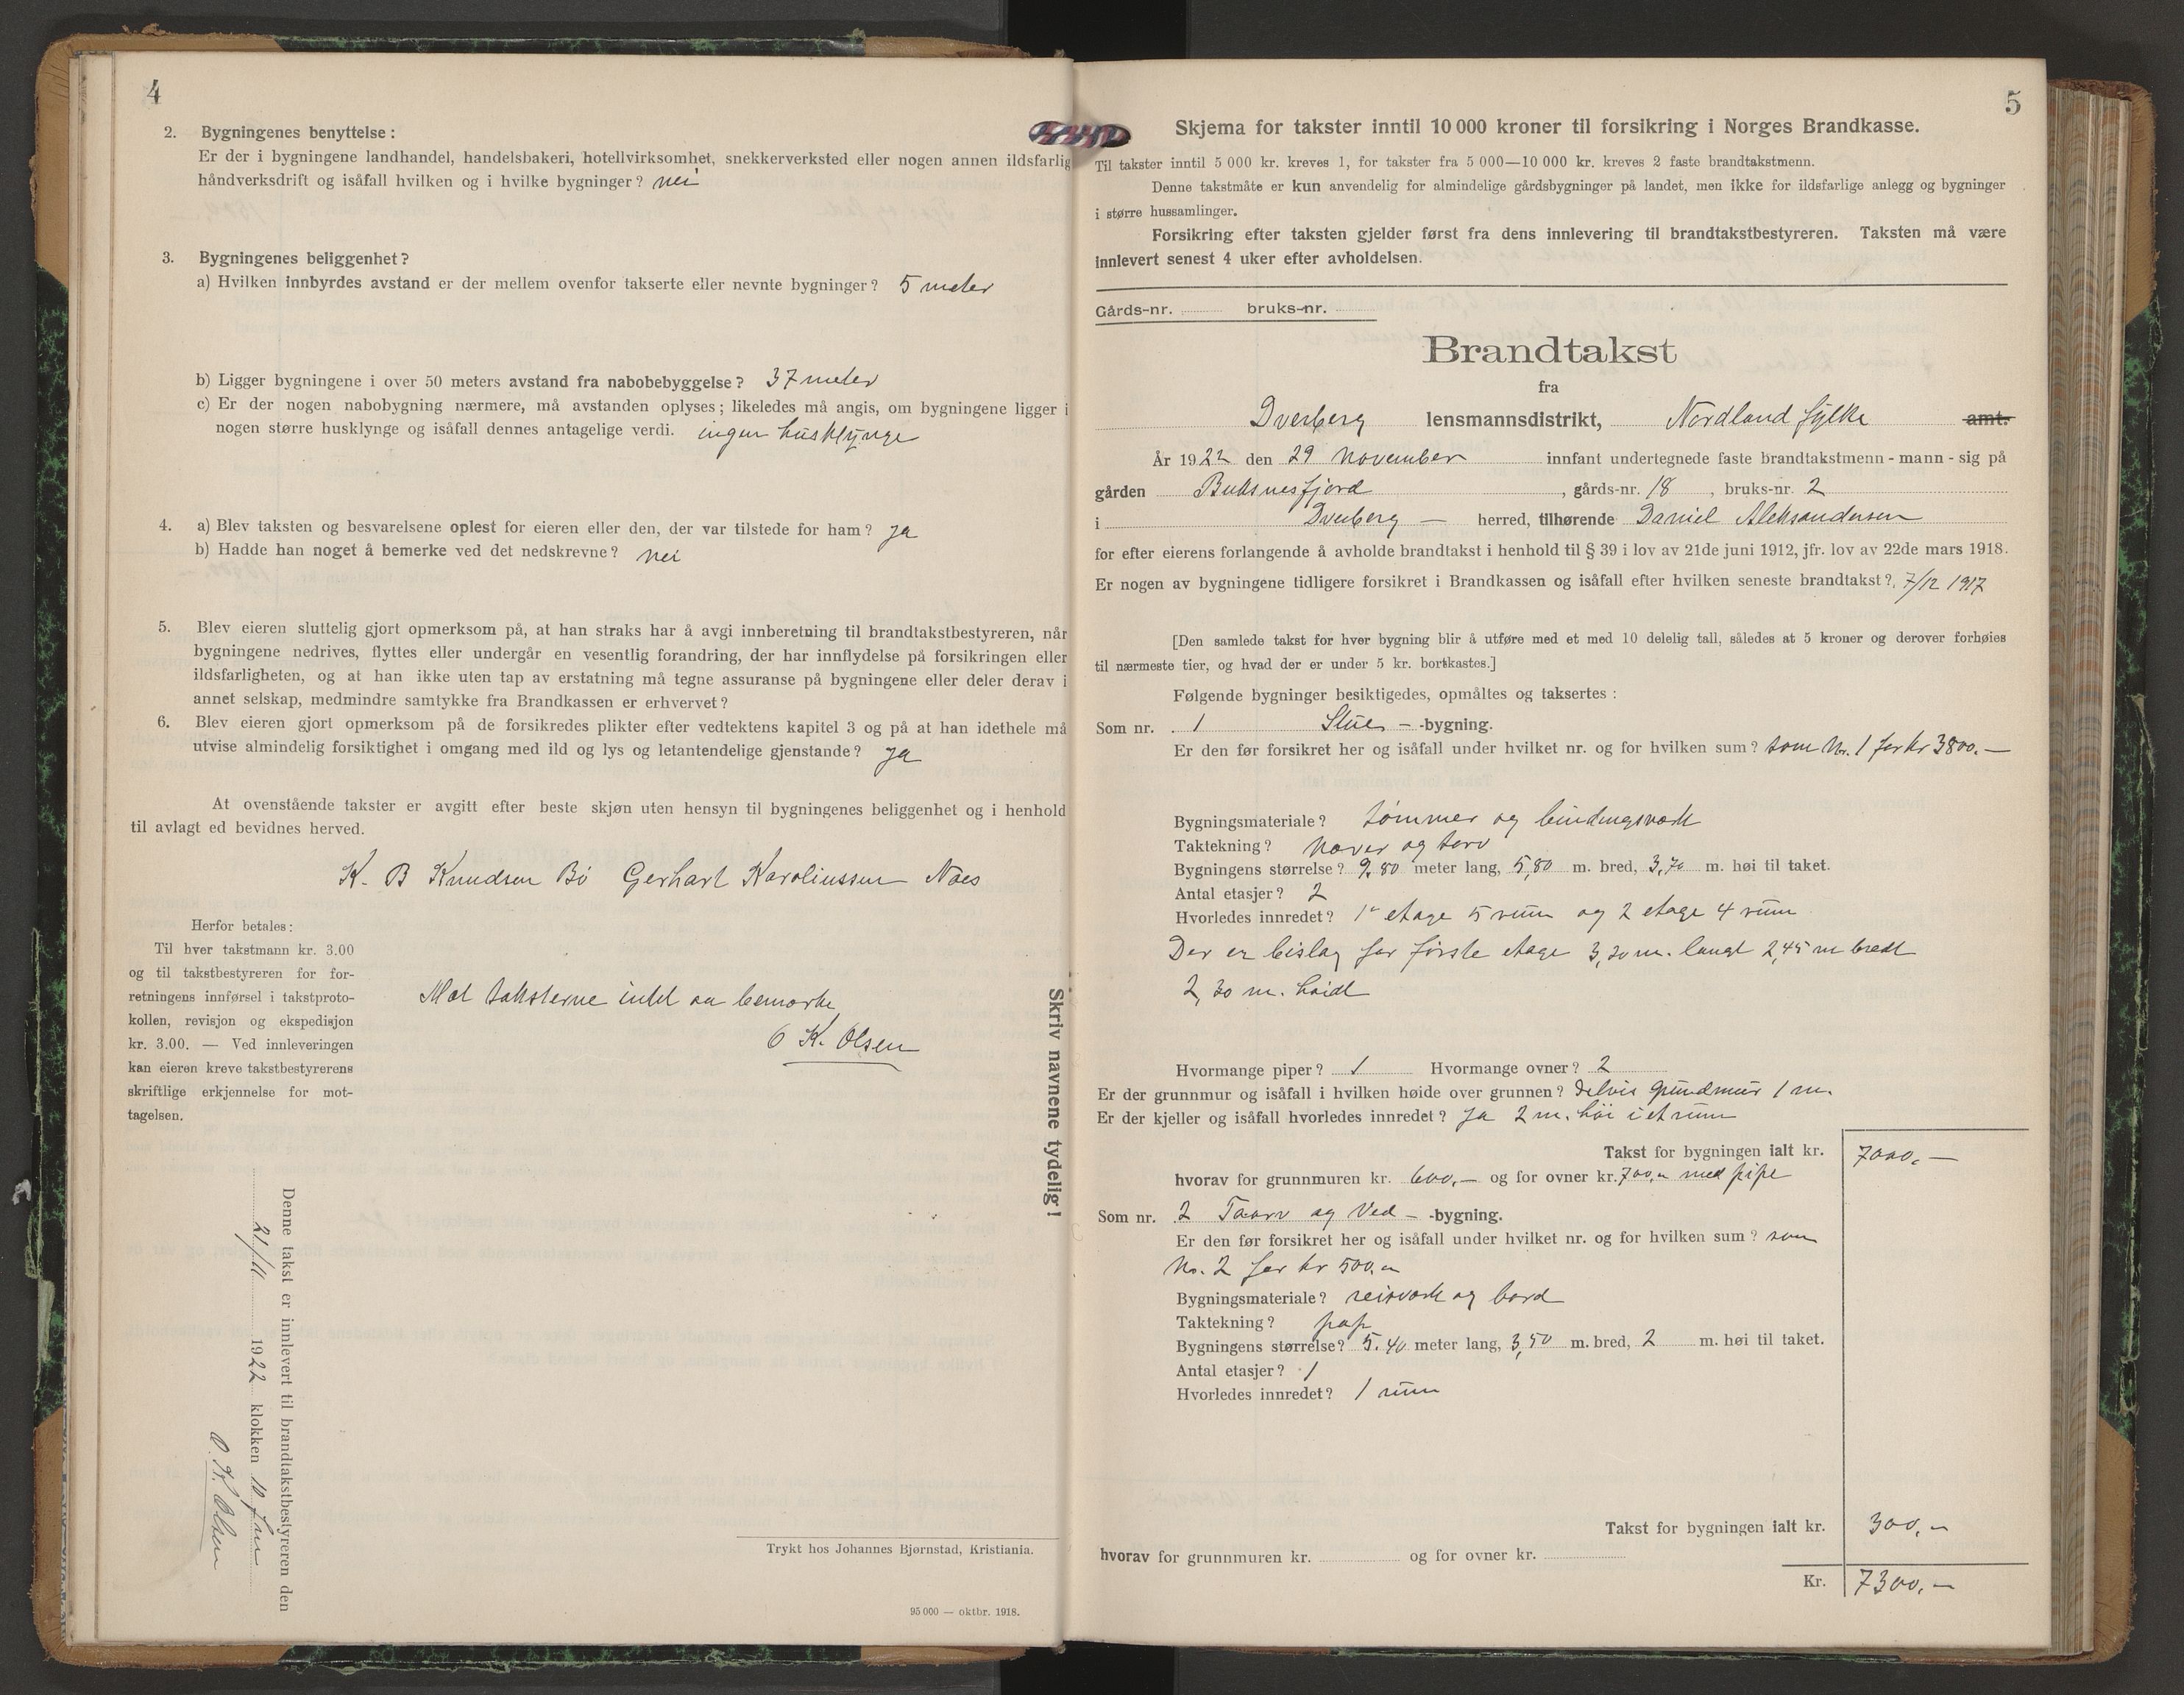 4
2. Bygningenes benyttelse:
Er der i bygningene landhandel, handelsbakeri, hotellvirksomhet, snekkerverksted eller nogen annen ildsfarlig
håndverksdrift og isåfall hvilken og i hvilke bygninger? nei
3. Bygningenes beliggenhet?
a) Hvilken innbyrdes avstand er der mellem ovenfor takserte eller nevnte bygninger? 5 meter
b) Ligger bygningene i over 50 meters avstand fra nabobebyggelse? 37 meter
c) Er der nogen nabobygning nærmere, må avstanden oplyses; likeledes må angis, om bygningene ligger i
nogen større husklynge og isåfall dennes antagelige verdi. ingen husklynge
4. a) Blev taksten og besvarelsene oplest for eieren eller den, der var tilstede for ham? ja
b) Hadde han noget å bemerke ved det nedskrevne? nei
5. Blev eieren sluttelig gjort opmerksom på, at han straks har å avgi innberetning til brandtakstbestyreren, når
bygningene nedrives, flyttes eller undergår en vesentlig forandring, der har innflydelse på forsikringen eller
ildsfarligheten, og at han ikke uten tap av erstatning må tegne assuranse på bygningene eller deler derav i
annet selskap, medmindre samtykke fra Brandkassen er erhvervet?
6. Blev eieren gjort opmerksom på de forsikredes plikter efter vedtektens kapitel 3 og på at han idethele må
utvise almindelig forsiktighet i omgang med ild og lys og letantendelige gjenstande? ja
At ovenstående takster er avgitt efter beste skjøn uten hensyn til bygningenes beliggenhet og i henhold
til avlagt ed bevidnes herved.
K. B Knudsen Bö Gerhart Karoliussen Naes
Herfor betales:
Til hver takstmann kr. 3.00
og til takstbestyreren for for-
retningens innførsel i takstproto-
kollen, revisjon og ekspedisjon
kr. 3.00. — Ved innleveringen
kan eieren kreve takstbestyrerens
skriftlige erkjennelse for mot-
tagelsen.
Mot taksterne intet aa bemærke
O K. Olsen
Skriv navnene tydelig!
Denne takst er innlevert til brandtakstbestyreren den
21/11 1922 klokken 10 fm
O. K. Olsen
Trykt hos Johannes Bjørnstad, Kristiania.
95 000 — oktbr. 1918.
5
Skjema for takster inntil 10 000 kroner til forsikring i Norges Brandkasse.
Til takster inntil 5 000 kr. kreves 1, for takster fra 5 000—10 000 kr. kreves 2 faste brandtakstmenn.
Denne takstmåte er kun anvendelig for almindelige gårdsbygninger på landet, men ikke for ildsfarlige anlegg og bygninger
i større hussamlinger.
Forsikring efter taksten gjelder først fra dens innlevering til brandtakstbestyreren. Taksten må være
innlevert senest 4 uker efter avholdelsen.
Gårds-nr. bruks-nr.
Brandtakst
fra
Dverberg lensmannsdistrikt, Nordland fylke amt.
År 1922 den 29 november innfant undertegnede faste brandtakstmenn - mann - sig på
gården Buksnesfjord, gårds-nr. 18, bruks-nr. 2
i Dverberg — herred, tilhørende Daniel Aleksandersen
for efter eierens forlangende å avholde brandtakst i henhold til § 39 i lov av 21de juni 1912, jfr. lov av 22de mars 1918.
Er nogen av bygningene tidligere forsikret i Brandkassen og isåfall efter hvilken seneste brandtakst? 7/12 1917
[Den samlede takst for hver bygning blir å utføre med et med 10 delelig tall, således at 5 kroner og derover forhøies
til nærmeste tier, og hvad der er under 5 kr. bortkastes.]
Følgende bygninger besiktigedes, opmåltes og taksertes:
Som nr. 1 Stue — -bygning.
Er den før forsikret her og isåfall under hvilket nr. og for hvilken sum? som Nr. 1 for kr 3800.—
Bygningsmateriale? tømmer og bindingsverk
Taktekning? Nøver og torv
Bygningens størrelse? 9,80 meter lang, 5,80 m. bred, 3,70 m. høi til taket.
Antal etasjer? 2
Hvorledes innredet? 1e etage 5 rum og 2 etage 4 rum
Der er bislag for förste etage 3,30 m. langt 2,45 m bredt
2,30 m. høidt
Hvormange piper? 1 Hvormange ovner? 2
Er der grunnmur og isåfall i hvilken høide over grunnen? delvis grundmur 1 m.
Er der kjeller og isåfall hvorledes innredet? ja 2 m. höi i et rum
Takst for bygningen ialt kr. 7000.—
hvorav for grunnmuren kr. 600,— og for ovner kr. 700,— med pipe
Som nr. 2 Taarv og Ved — -bygning.
Er den før forsikret her og isåfall under hvilket nr. og for hvilken sum? som
No. 2 for kr 500,—
Bygningsmateriale? reisværk og bord
Taktekning? pap
Bygningens størrelse? 5.40 meter lang, 3,50 m. bred, 2 m. høi til taket.
Antal etasjer? 1
Hvorledes innredet? 1 rum
Takst for bygningen ialt kr. 300,—
hvorav for grunnmuren kr. og for ovner kr.
Kr. 7300,—